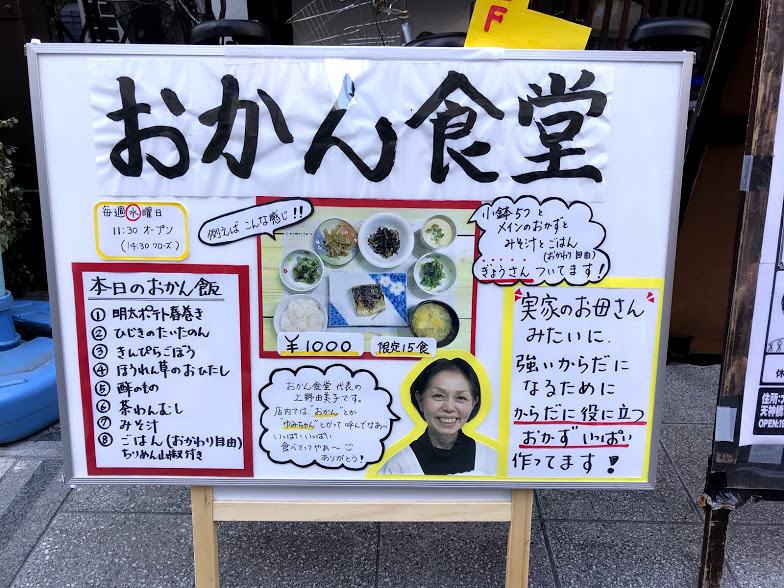 F
おかん食堂
毎週水曜日
11:30 オープン
(14:30 クローズ)
例えば こんな感じ!!
小鉢5つと
メインのおかずと
みそ汁とごはん
(おかわり自由)
ぎょうさん ついてます!
¥1000
限定15食
本日のおかん飯
① 明太ポテト春巻き
② ひじきのたいたのん
③ きんぴらごぼう
④ ほうれん草のおひたし
⑤ 酢のもの
⑥ 茶わんむし
⑦ みそ汁
⑧ ごはん (おかわり自由)
ちりめん山椒付き
おかん食堂 代表の
上野由美子です。
店内では"おかん"とか
"ゆみちゃん"とかって呼んでなぁ〜
いっぱいいっぱい
食べてってやぁ〜
ありがとう!
"実家のお母さん"
みたいに、
強いからだに
なるために
からだに役に立つ
おかずいっぱい
作ってます!
休
住所:
天神橋
OPEN:18